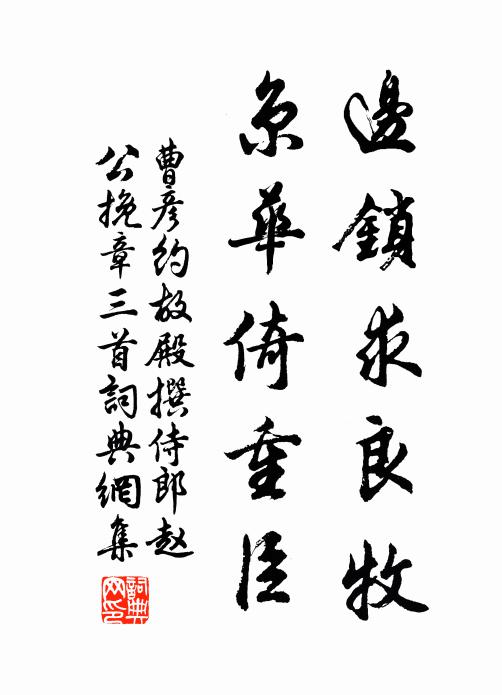 邊鎖求良牧
京華倚重臣
曹彦約故殿撰侍郎赵
公挽章三首詞典網集
詞典网印